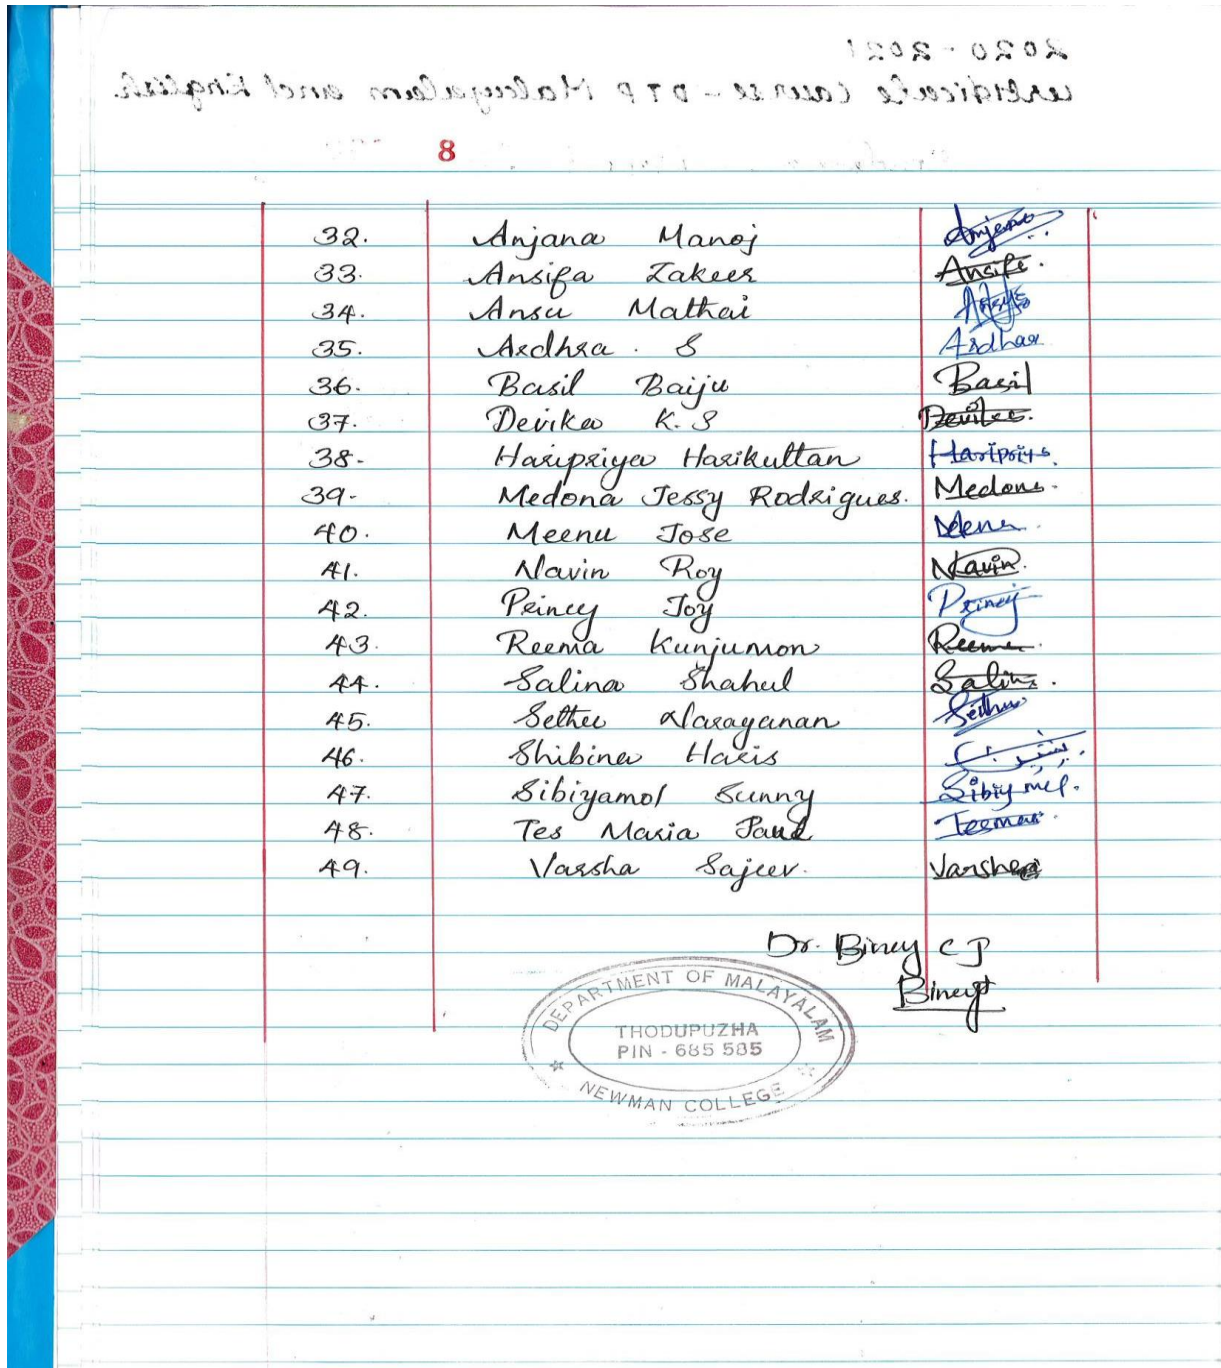 2020-2021
Certificate Course - DTP Malayalam and English.
8
32. Anjana Manoj Anjana
33. Ansifa Zakeer Ansifa.
34. Ansu Mathai
35. Ardhra. S Ardhra
36. Basil Baiju Basil
37. Devika K.S Devika.
38. Haripriya Harikuttan Haripriya.
39. Medona Jessy Rodrigues. Medona.
40. Meenu Jose
41. Navin Roy Navin.
42. Princy Joy Princy
43. Reema Kunjumon Reema.
44. Salina Shahul Salina.
45. Sethu Narayanan Sethu
46. Shibina Haris
47. Sibiyamol Sunny Sibiymol.
48. Tes Maria Paul Tesmar.
49. Varsha Sajeev. Varsha
Dr. Bincy C J
Bincy
DEPARTMENT OF MALAYALAM
THODUPUZHA
PIN - 685 585
NEWMAN COLLEGE